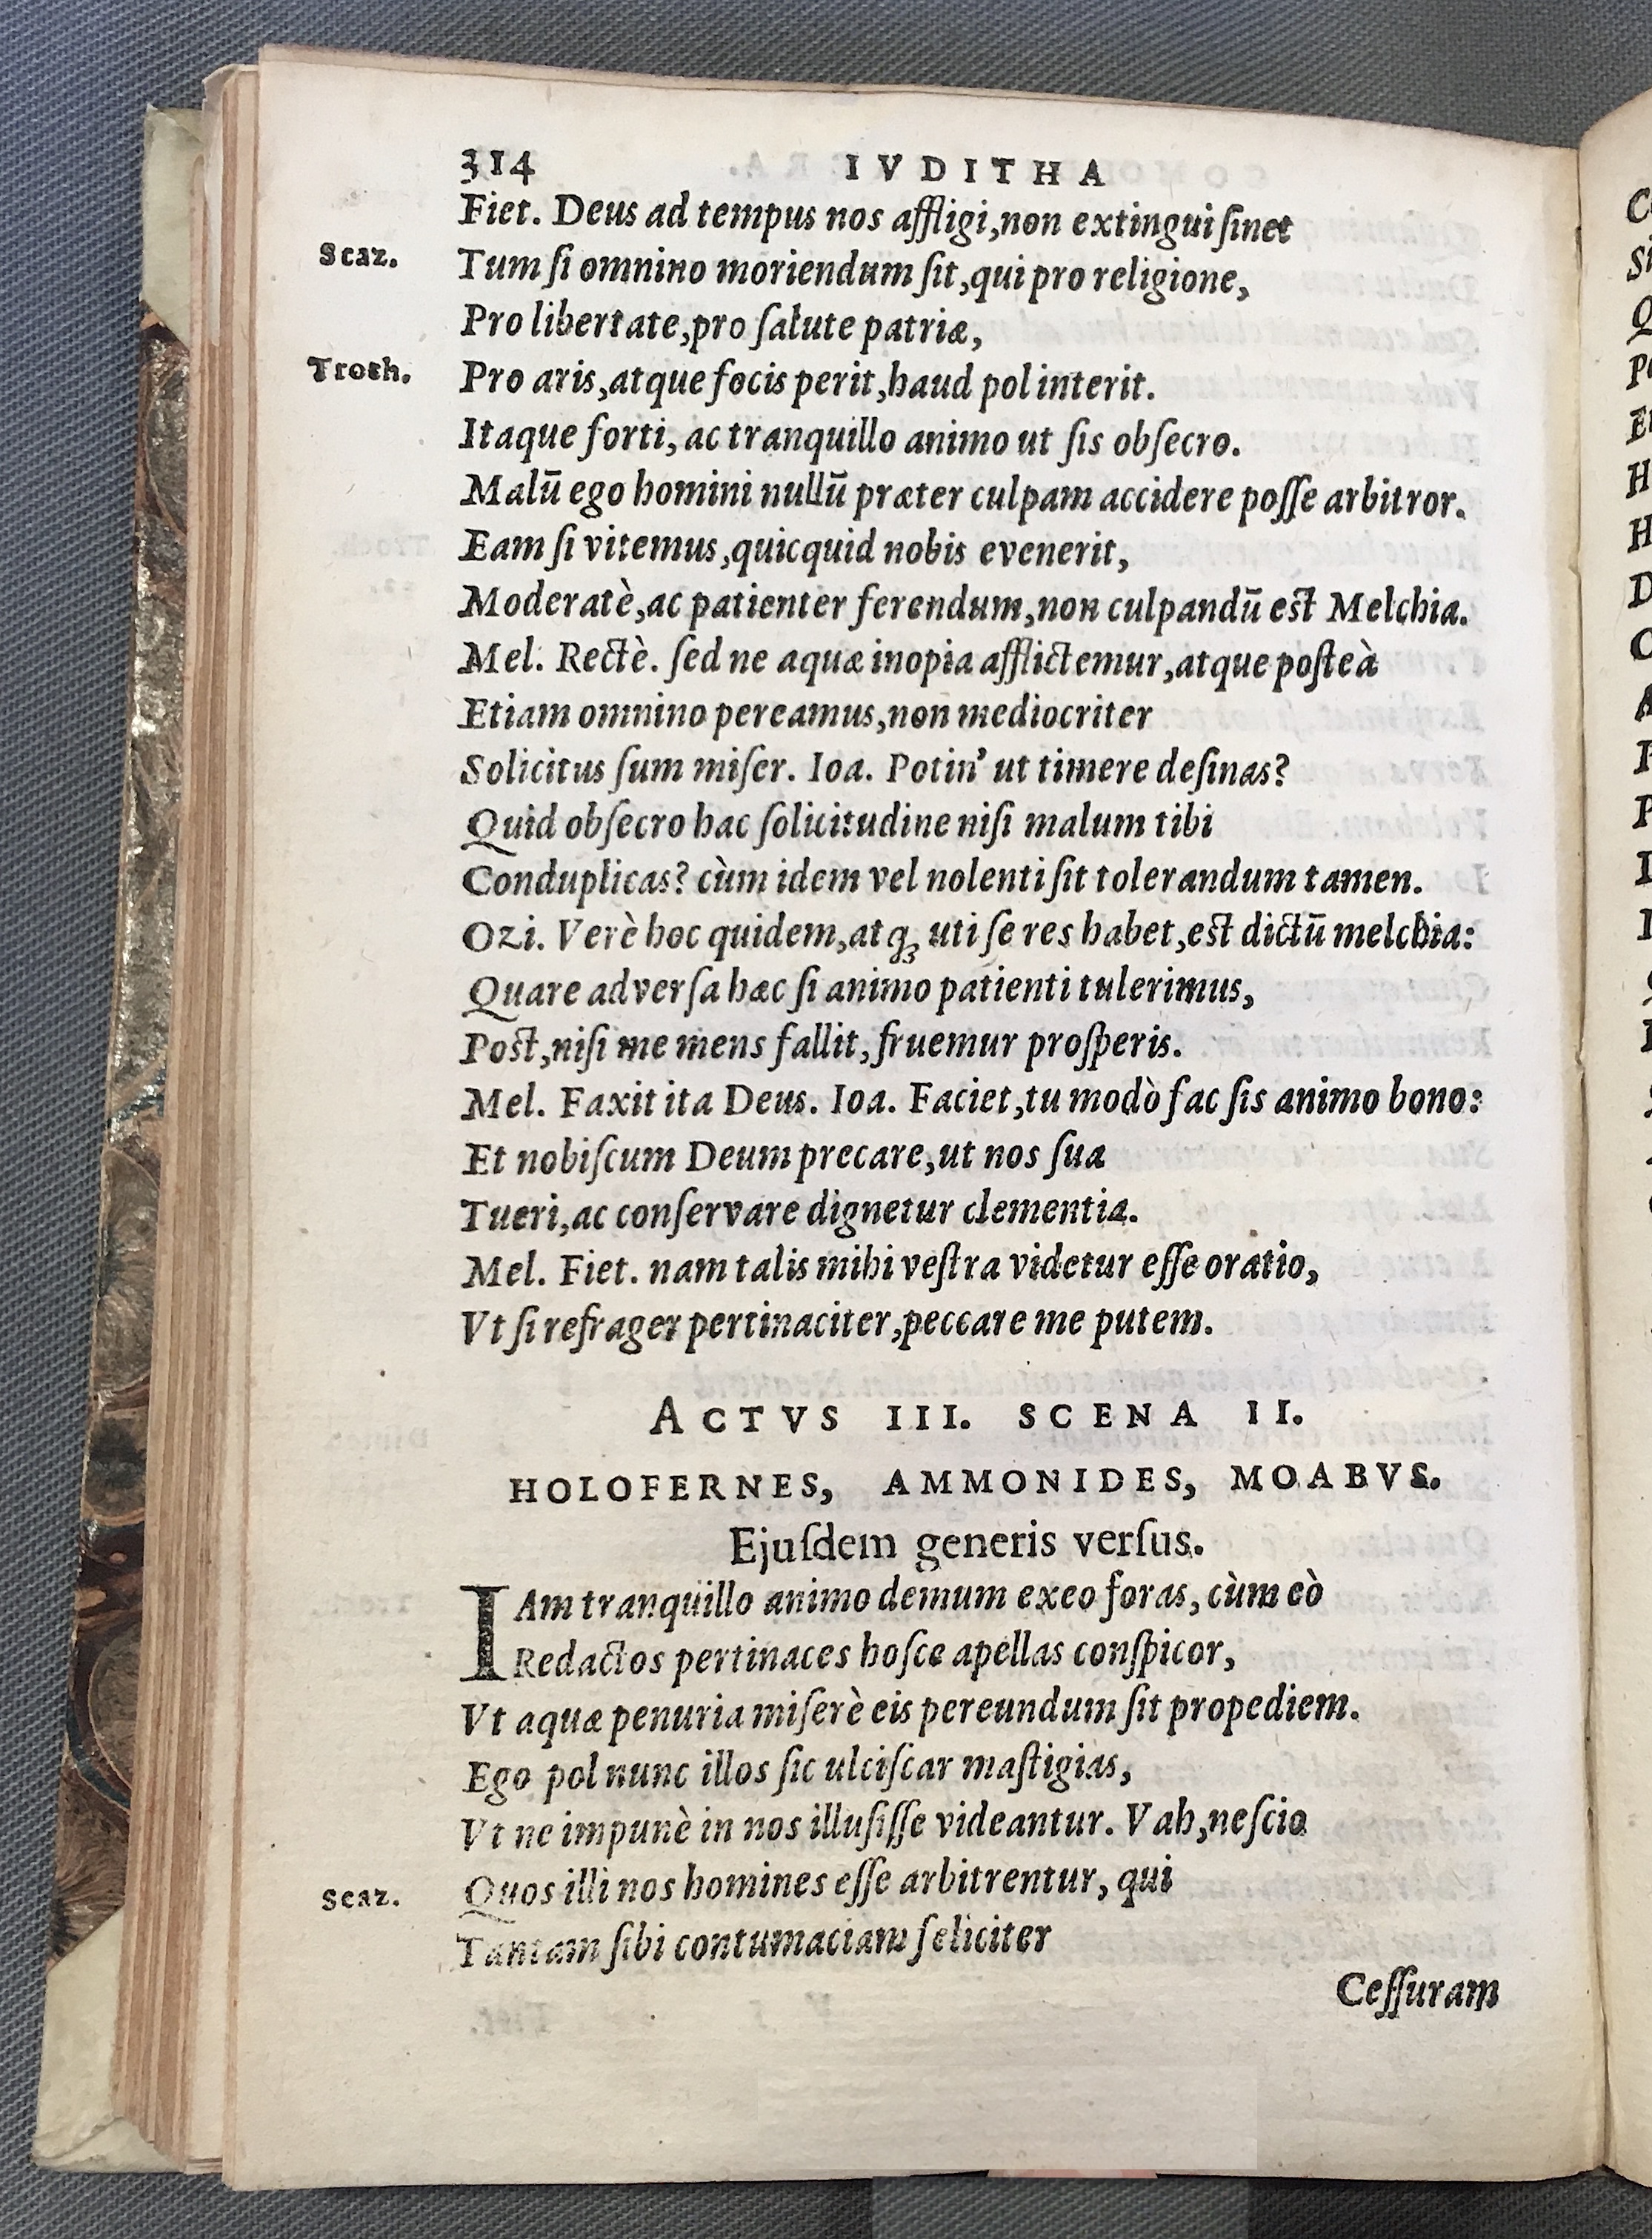 314 IVDITHA
Fiet. Deus ad tempus nos affligi,non extingui ſinet
Scaz. Tum ſi omnino moriendum ſit,qui pro religione,
Pro libertate,pro ſalute patriæ,
Troch. Pro aris,atque focis perit,haud pol interit.
Itaque forti, ac tranquillo animo ut ſis obſecro.
Malū ego homini nullū præter culpam accidere poſſe arbitror.
Eam ſi vitemus,quicquid nobis evenerit,
Moderatè,ac patienter ferendum,non culpandū est Melchia.
Mel. Rectè. ſed ne aquæ inopia afflictemur,atque poſteà
Etiam omnino pereamus,non mediocriter
Solicitus ſum miſer. Ioa. Potin' ut timere deſinas?
Quid obſecro hac ſolicitudine niſi malum tibi
Conduplicas? cùm idem vel nolenti ſit tolerandum tamen.
Ozi. Verè hoc quidem,atqꝫ uti ſe res habet,est dictū melchia:
Quare adverſa hæc ſi animo patienti tulerimus,
Post,niſi me mens fallit,fruemur proſperis.
Mel. Faxit ita Deus. Ioa. Faciet,tu modò fac ſis animo bono:
Et nobiſcum Deum precare,ut nos ſua
Tueri,ac conſervare dignetur clementia.
Mel. Fiet. nam talis mihi veſtra videtur eſſe oratio,
Vt ſi refrager pertinaciter,peccare me putem.
ACTVS III. SCENA II.
HOLOFERNES, AMMONIDES, MOABVS.
Ejuſdem generis verſus.
IAm tranquillo animo demum exeo foras, cùm eò
Redactos pertinaces hoſce apellas conſpicor,
Vt aquæ penuria miſerè eis pereundum ſit propediem.
Ego pol nunc illos ſic ulciſcar maſtigias,
Vt ne impunè in nos illuſiſſe videantur. Vah,neſcio
Scaz. Quos illi nos homines eſſe arbitrentur, qui
Tantam ſibi contumaciam feliciter
Ceſſuram